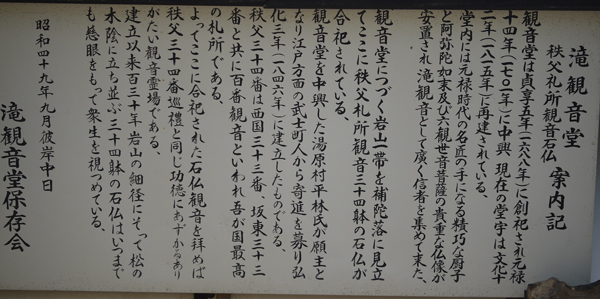 滝観音堂
秩父札所観音石仏 案内記
観音堂は貞享五年(一六八八年)に創祀され元禄
十四年(一七〇一年)に中興 現在の堂宇は文化十
二年(一八一五年)に再建されている、
堂内には元禄時代の名匠の手になる精巧な厨子
と阿弥陀如来及び六観世音菩薩の貴重な仏像が
安置され 滝観音として広く信者を集めて来た、
観音堂につづく岩山一帯を補陀落に見立
てここに秩父札所観音三十四躰の石仏が
合祀されている、
観音堂を中興した湯原村平林氏が願主と
なり江戸方面の武士町人から寄進を募り弘
化三年(一八四六年)に建立したものである、
秩父三十四番は西国三十三番、坂東三十三
番と共に百番観音といわれ吾が国最高
の札所である、
よってここに合祀された石仏観音を拝めば
秩父三十四番巡禮と同じ功徳にあずかるあり
がたい観音霊場である、
建立以来百三十年岩山の細径にそって松の
木陰に立ち並ぶ三十四躰の石仏はいつまで
も慈眼をもって衆生を視つめている、
昭和四十九年九月彼岸中日
滝観音堂保存会